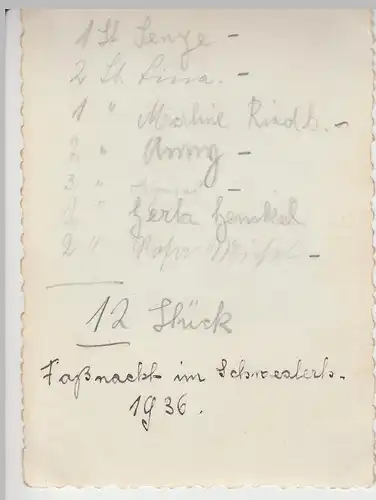 1 St. Senze –
2 St. Lissa. –
1 " Marline Rindh. –
2 " Anny –
3 " –
1 " Gerta Henskel
2 " –
12 Stück
Faßnacht im Schwesterh.
1936.